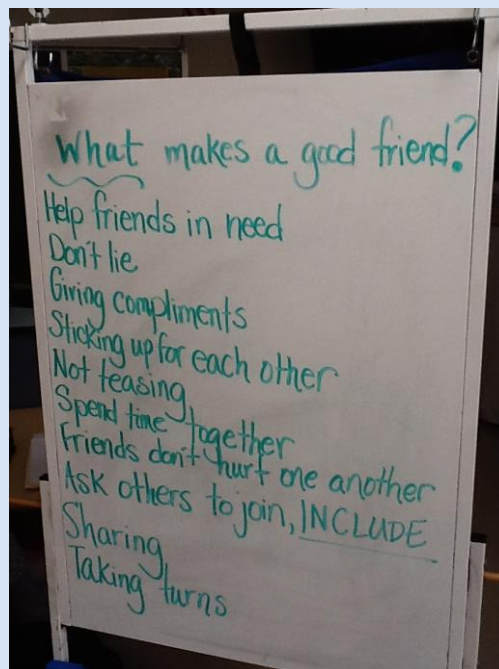 What makes a good friend?
Help friends in need
Don't lie
Giving compliments
Sticking up for each other
Not teasing
Spend time together
Friends don't hurt one another
Ask others to join, INCLUDE
Sharing
Taking turns